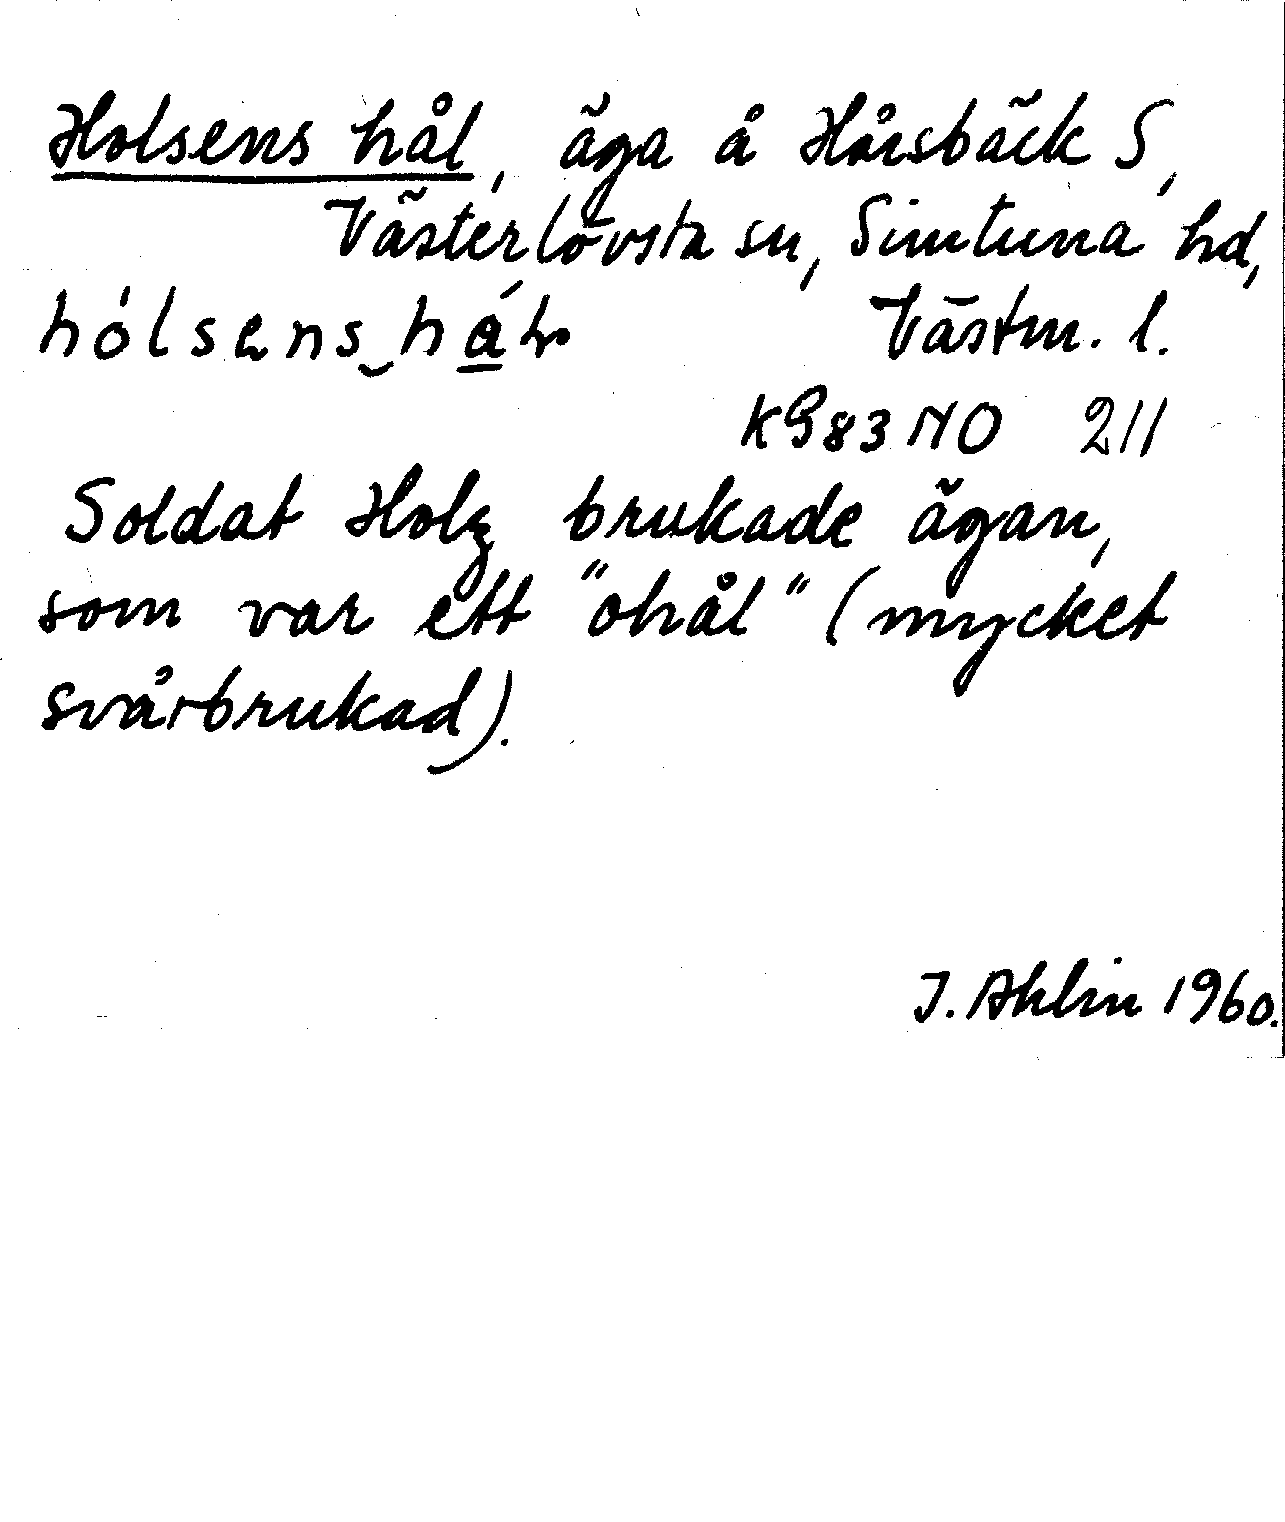 Holsens hål, äga å Hårsbäck S,
Västerlövsta sn, Simtuna hd,
Västm. l.
KG83NO 211
Soldat Holz brukade ägan,
som var ett "ohål" (mycket
svårbrukad).
J. Ahlin 1960.